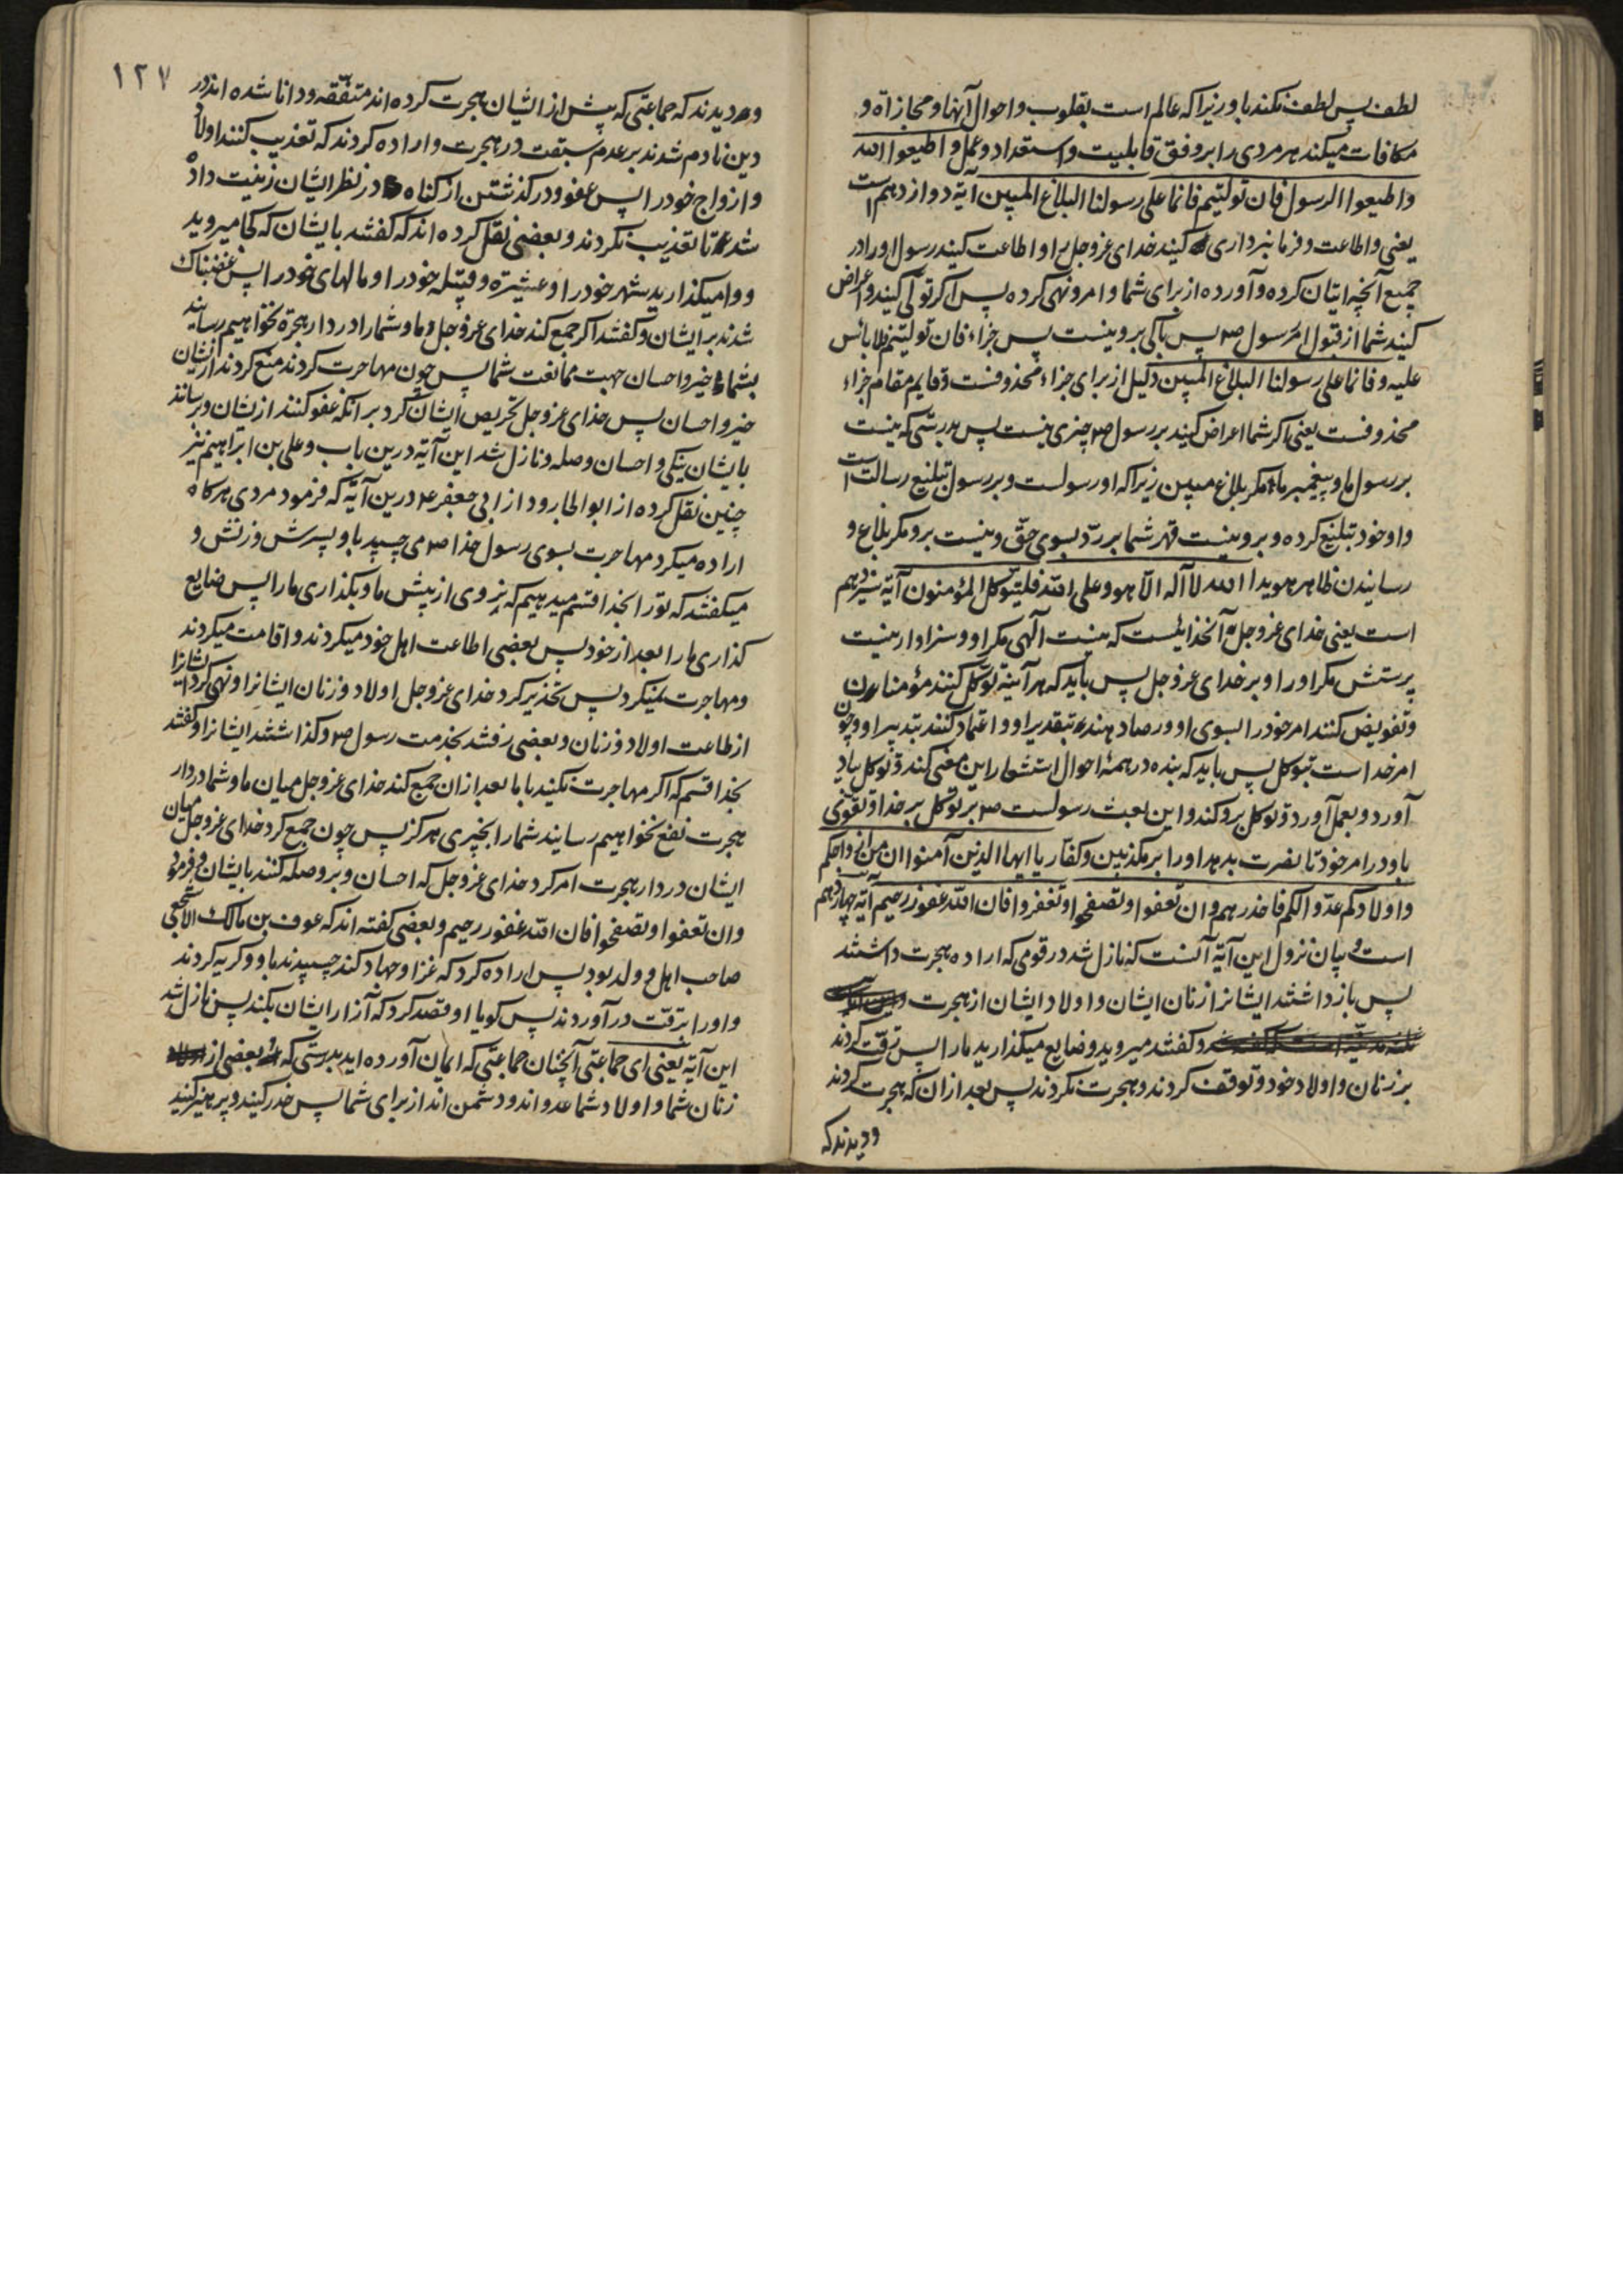 لطف پس لطف نکند باو زیرا که عالم است بقلوب و احوال آنها و مجازاة و
مکافات میکند هر مردی را بر وفق قابلیت و استعداد و عمل و اطیعوا الله
و اطیعوا الرسول فان تولیتم فانما علی رسولنا البلاغ المبین آیة دوازدهم است
یعنی و اطاعت و فرمانبرداری کنید خدای عزوجل را و اطاعت کنید رسول او را در
جمیع آنچه اتیان کرده و آورده از برای شما و امر و نهی کرده پس اگر تولّی کنید و اعراض
کنید شما از قبول امر رسول ص پس باکی برو نیست پس جزاء فان تولیتم فلا بائس
علیه و فانما علی رسولنا البلاغ المبین دلیل از برای جزاء محذوفست و قایم مقام جزاء
محذوفست یعنی اگر شما اعراض کنید بر رسول ص چیزی نیست پس بدرستی که نیست
بر رسول ما و پیغمبر ما مکر بلاغ مبین زیرا که او رسولست و بر رسول تبلیغ رسالت است
و او خود تبلیغ کرده و برو نیست قهر شما بر ردّ بسوی حقّ و نیست برو مکر بلاغ و
رسانیدن ظاهر هویدا الله لا آله الّا هو و علی الله فلیتوکل المؤمنون آیة سیزدهم
است یعنی خدای عزوجل آنخدائیست که نیست آلهی مکر او و سزاوار نیست
پرستش مکر او را و بر خدای عزوجل پس باید که هر آینه توکل کنند مؤمنان
و تفویض کنند امر خود را بسوی او و رضا دهند بتقدیر او و اعتماد کنند بتدبیر او و چون
امر خداست بتوکل پس باید که بنده در همهٔ احوال استشعار این معنی کند و توکل بیاد
آورد و بعمل آورد و توکل برو کند و این بعث رسولست ص بر توکل بر خدا و تقوی
باو در امر خود تا نصرت بدهد او را بر مکذبین و کفار یا ایها الذین آمنوا ان من ازواجکم
و اولادکم عدوا لکم فاحذرهم و ان تعفوا و تصفحوا و تغفروا فان الله غفور رحیم آیة چهاردهم
است و بیان نزول این آیة آنست که نازل شد در قومی که اراده هجرت داشتند
پس بازداشتند ایشانرا زنان ایشان و اولاد ایشان از هجرت
و کفتند میروید و ضایع میکذارید ما را پس ترقّت کردند
بر زنان و اولاد خود و توقف کردند و هجرت نکردند پس بعد از ان که هجرت کردند
و دیدند که
۱۲۷
و دیدند که جماعتی که پیش از ایشان هجرت کرده اند متفقّه و دانا شده اند در
دین نادم شدند بر عدم سبقت در هجرت و اراده کردند که تعذیب کنند اولاد
و ازواج خود را پس عفو و درکذشتن از کناه در نظر ایشان زینت داده
شد تا تعذیب نکردند و بعضی نقل کرده اند که کفتند بایشان که کجا میروید
و وامیکذارید شهر خود را و عشیره و قبیله خود را و مالهای خود را پس غضبناک
شدند بر ایشان و کفتند اکر جمع کند خدای عزوجل و ما و شما را در دار هجرة نخواهیم رسانید
بشما خیر و احسان جهت ممانعت شما پس چون مهاجرت کردند منع کردند از ایشان
خیر و احسان پس خدای عزوجل تحریص ایشان کرد بر آنکه عفو کنند از یشان و برسانند
بایشان نیکی و احسان و صله و نازل شد این آیة درین باب و علی بن ابراهیم نیز
چنین نقل کرده از ابو الجارود از ابی جعفر ع درین آیة که فرمود مردی هرکاه
اراده میکرد مهاجرت بسوی رسول خدا ص می چسپید باو پسرش و زنش و
میکفتند که تو را بخدا قسم میدهیم که نروی از پیش ما و بکذاری ما را پس ضایع
کذاری ما را بعد از خود پس بعضی اطاعت اهل خود میکردند و اقامت میکردند
و مهاجرت نمیکرد پس تحذیر کرد خدای عزوجل اولاد و زنان ایشانرا و نهی کرد ایشانرا
از طاعت اولاد و زنان و بعضی رفتند بخدمت رسول ص و کذاشتند ایشانرا و کفتند
بخدا قسم که اکر مهاجرت نکنید با ما بعد از ان جمع کند خدای عزوجل میان ما و شما در دار
هجرت نفع نخواهیم رسانید شما را بچیزی هرکز پس چون جمع کرد خدای عزوجل میان
ایشان در دار هجرت امر کرد خدای عزوجل که احسان و بر و صله کنند بایشان و فرمود
و ان تعفوا و تصفحوا فان الله غفور رحیم و بعضی کفته اند که عوف بن مالک الاشجعی
صاحب اهل و ولد بود پس اراده کرد که غزا و جهاد کند چسپیدند باو و کریه کردند
و او را برقّت درآوردند پس کویا او قصد کرد که آزار ایشان بکند پس نازل شد
این آیة یعنی ای جماعتی آنچنان جماعتی که ایمان آورده اید بدرستی که بعضی از
زنان شما و اولاد شما عدو اند و دشمن اند از برای شما پس حذر کنید و پرهیز کنید